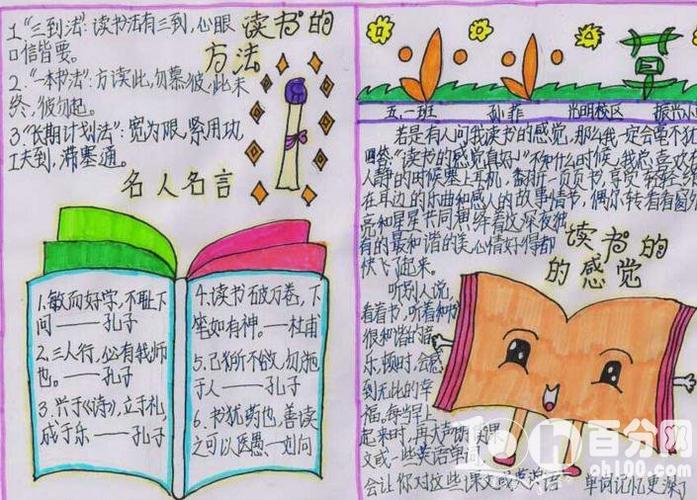 读书的
方法
1."三到法":读书法有三到,心眼
口信皆要。
2."一本书法":方读此,勿慕彼,此未
终,彼勿起。
3."长期计划法":宽为限,紧用功
工夫到,滞塞通。
名人名言
1.敏而好学,不耻下
问——孔子
2.三人行,必有我师
也。——孔子
3.兴于《诗》,立于礼,
成于乐——孔子
4.读书破万卷,下
笔如有神。—杜甫
5.己所不欲,勿施
于人——孔子
6.书犹药也,善读
之可以医愚—刘向
五.二班 孙菲 光明校区 振兴小
若是有人问我读书的感觉,那么我一定会毫不犹
回答:"读书的感觉真好!"不知什么时候,我总喜欢
人静的时候塞上耳机,翻开一页页书,享受轻轻
在耳边的乐曲和感人的故事情节,偶尔转看看窗外
亮和星星共同演绎着这深夜独
有的最和谐的美心情好得都
快飞了起来。
读书的
的感觉
听别人说,
看着书,听着和书
很和谐的音
乐,顿时,会感
到无比的幸
福。每当早上
起来时,再大声
文或一些英语单词
会让你对这些课文或英语 单词记忆更深
百分网